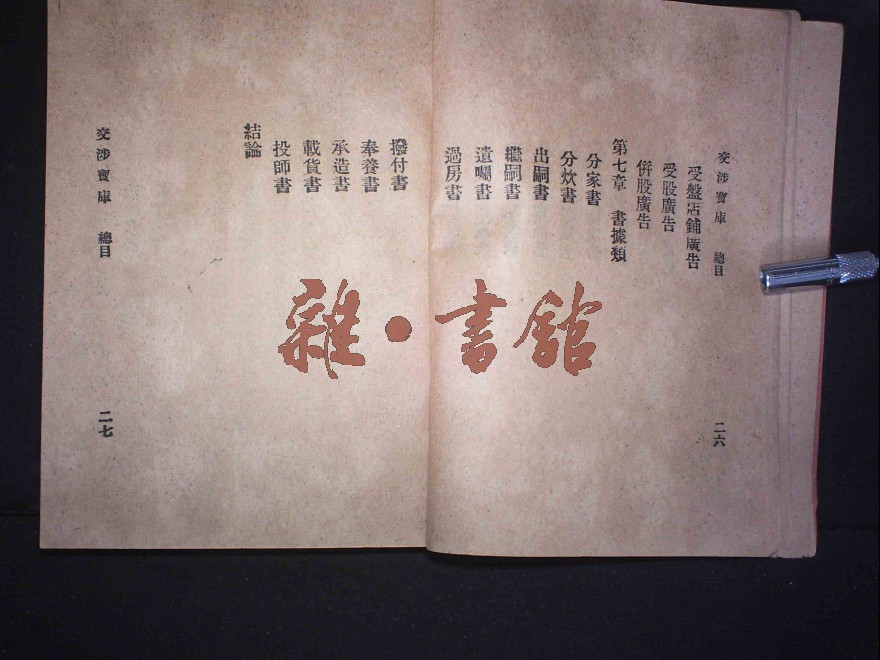 交涉寶庫 總目 二六
受盤店鋪廣告
受股廣告
併股廣告
第七章 書據類
分家書
分炊書
出嗣書
繼嗣書
遺囑書
過房書
撥付書
奉養書
承造書
載貨書
投師書
結論
交涉寶庫 總目 二七
雜·書館